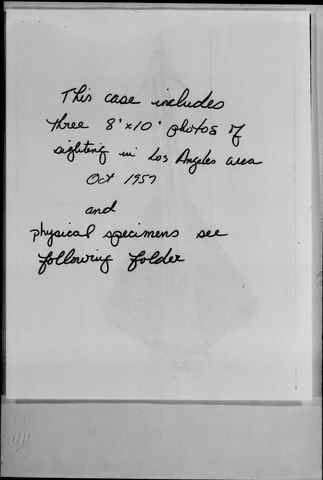 This case includes
three 8'x10' photos of
sighting in Los Angeles area
Oct 1957
and
physical specimens see
following folder